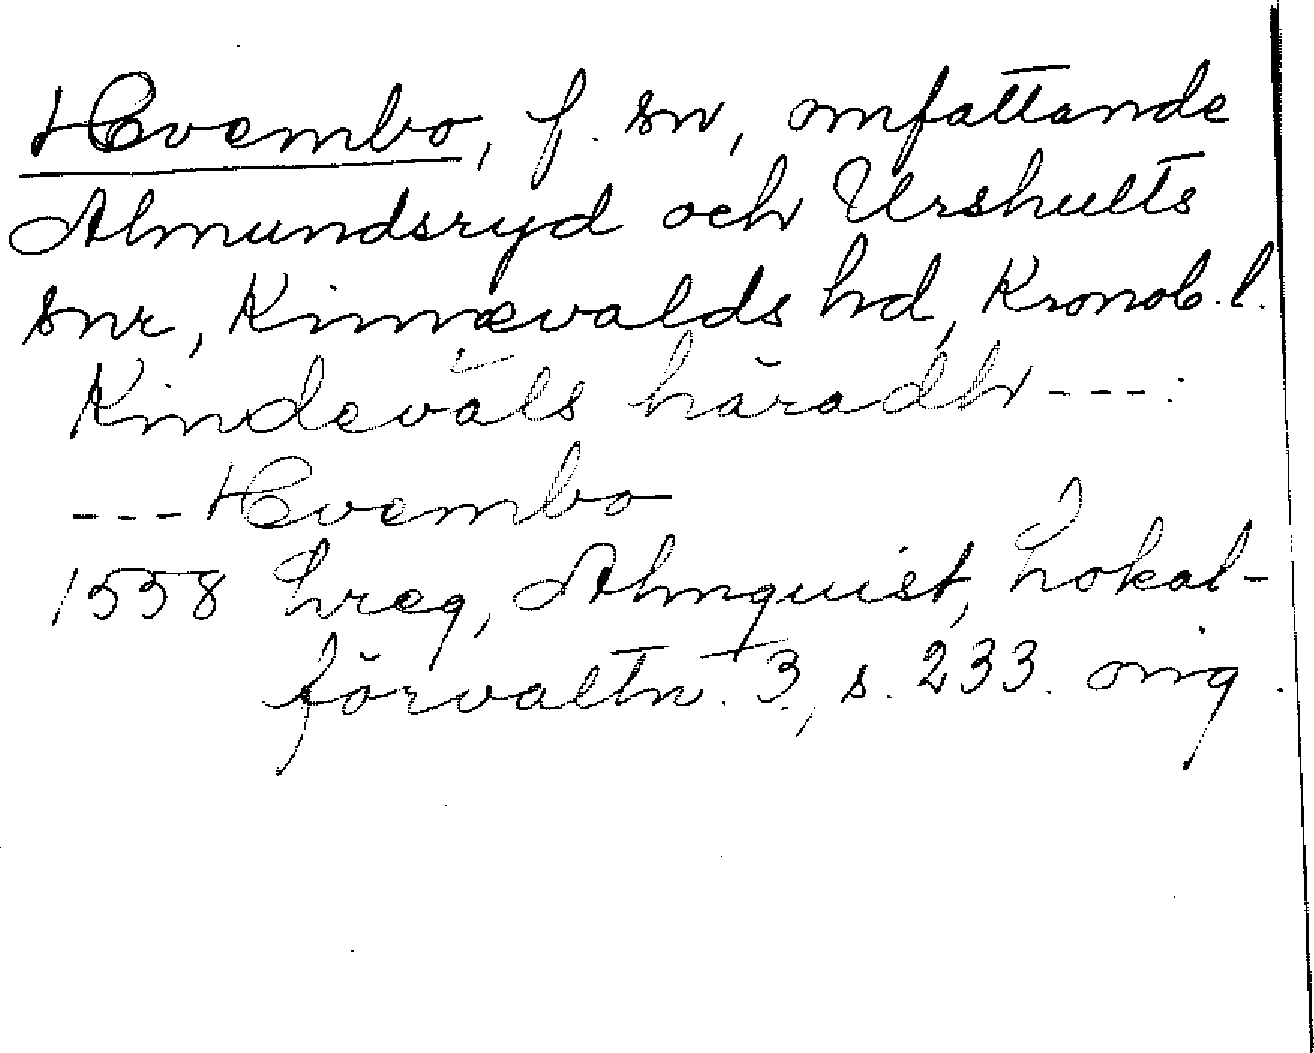 Hvembo, f. sn, omfattande
Almundsryd och Urshults
snr, Kinnevalds hd, Kronob. l.
Kindevåls häradh ---:
--- Hvembo
1558 Lreg, Almquist, Lokal-
förvaltn. 3, s. 233. orig.